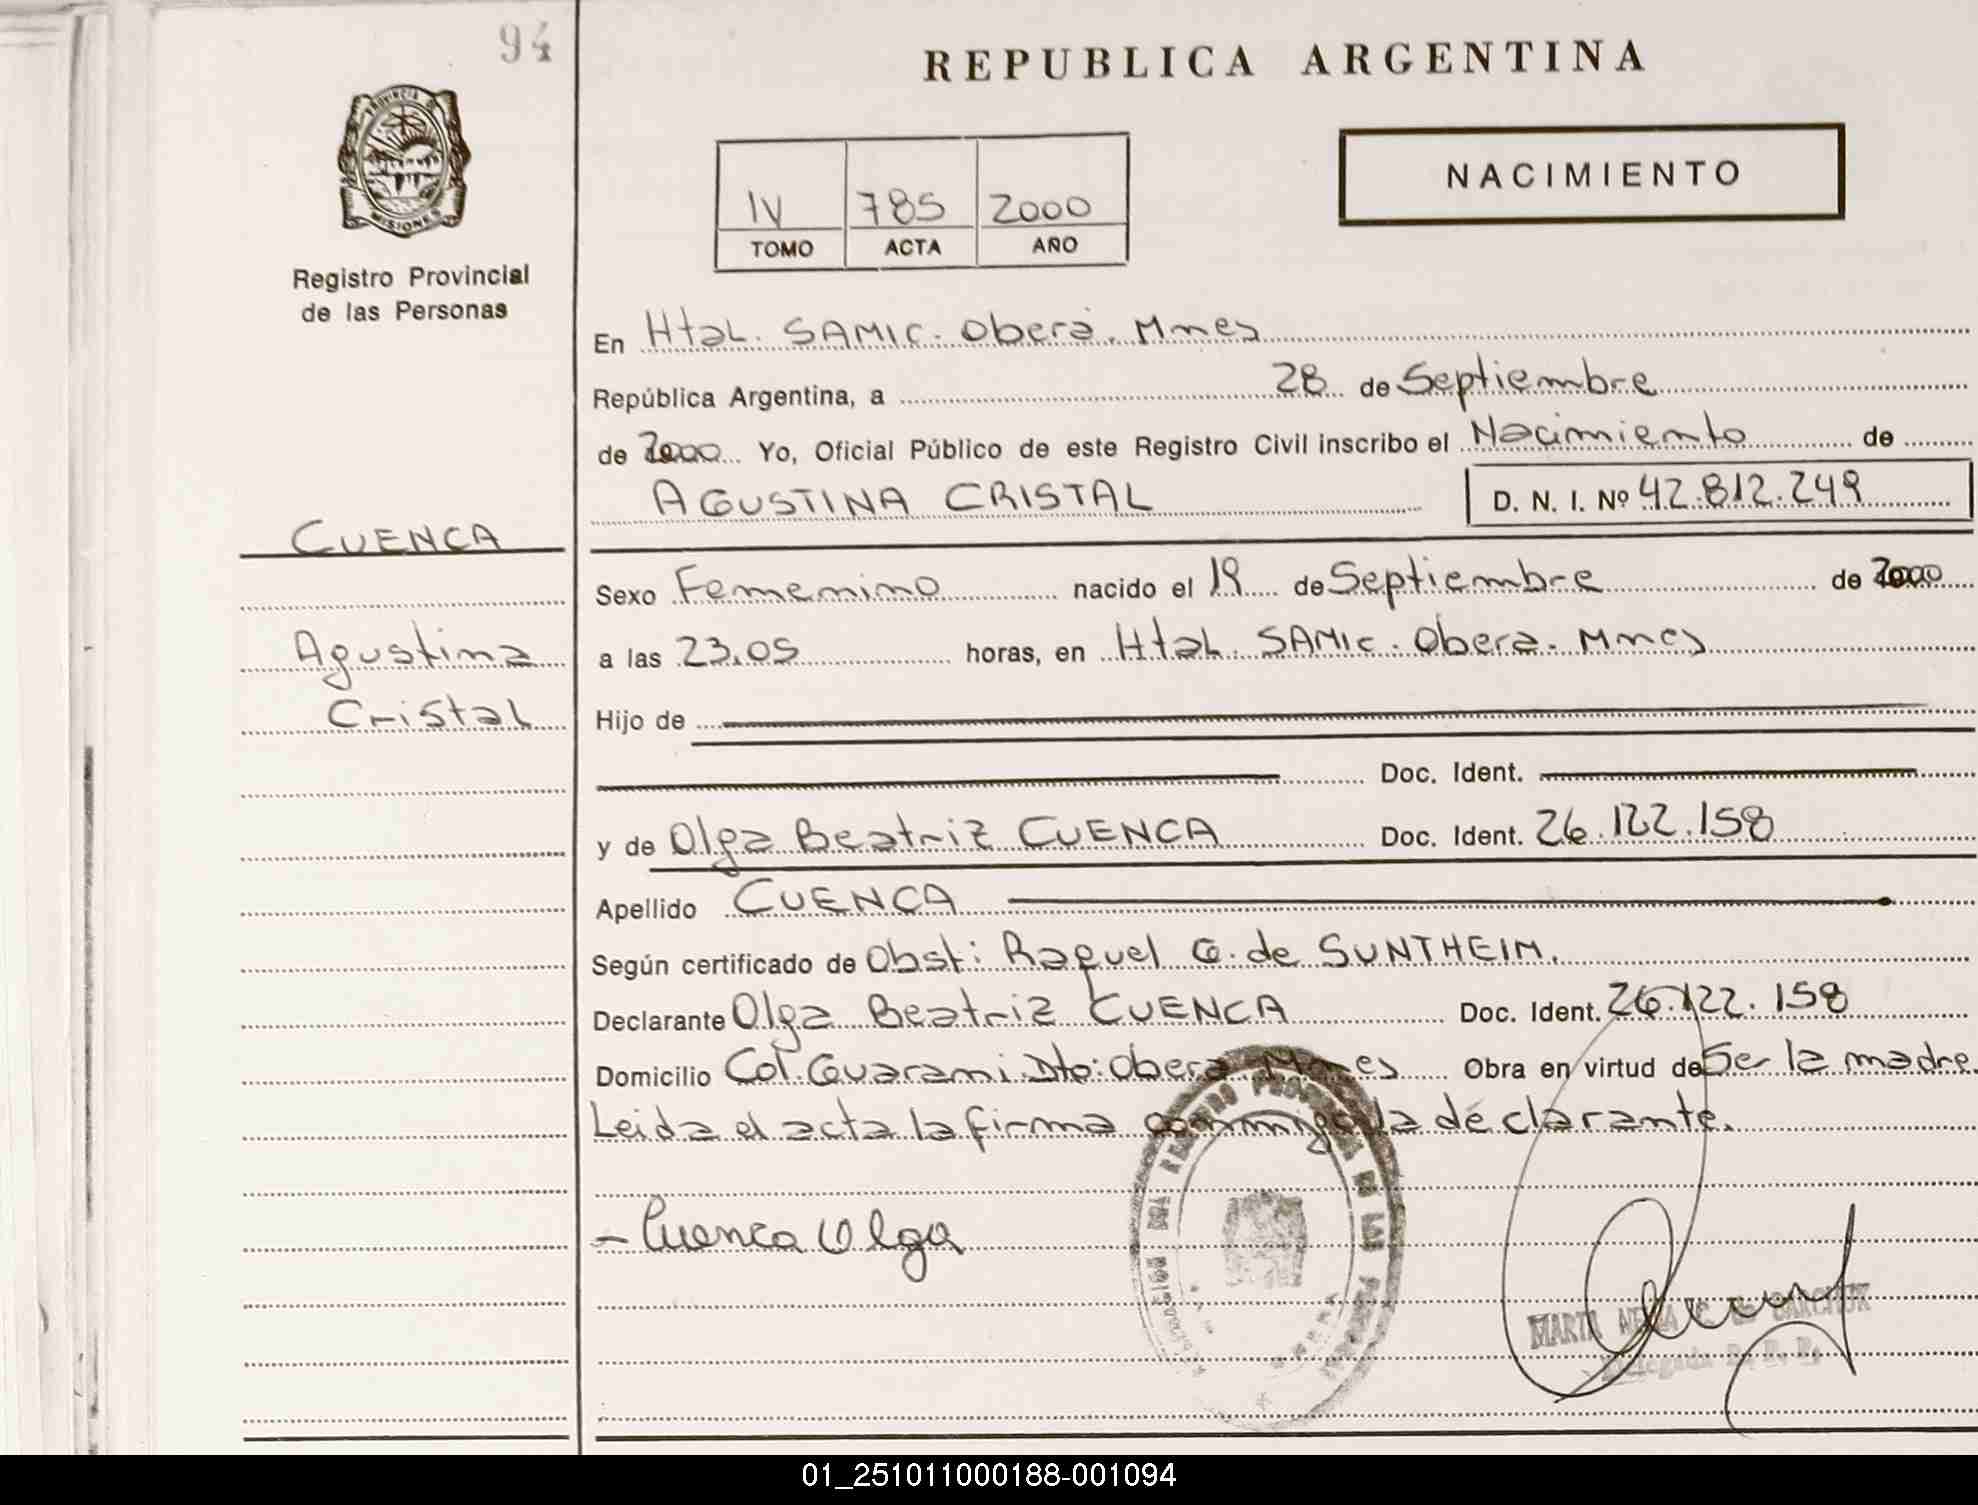 94
REPUBLICA ARGENTINA
PROVINCIA DE
MISIONES
Registro Provincial
de las Personas
IV 785 2000
TOMO ACTA AÑO
NACIMIENTO
En Htal. SAMIC. Oberá. Mnes
República Argentina, a 28 de Septiembre
de 2000 Yo, Oficial Público de este Registro Civil inscribo el Nacimiento de
AGUSTINA CRISTAL D. N. I. Nº 42.812.249
CUENCA
Sexo Femenino nacido el 19 de Septiembre de 2000
Agustina
a las 23.05 horas, en Htal. SAMIC. Oberá. Mnes
Cristal
Hijo de
Doc. Ident.
y de Olga Beatriz CUENCA Doc. Ident. 26.122.158
Apellido CUENCA
Según certificado de Obst: Raquel G. de SUNTHEIM.
Declarante Olga Beatriz CUENCA Doc. Ident. 26.122.158
Domicilio Col. Guaraní. Dto: Oberá Mnes Obra en virtud de Ser la madre.
Leida el acta la firma conmigo la declarante.
- Cuenca Olga
MARTA
01_251011000188-001094